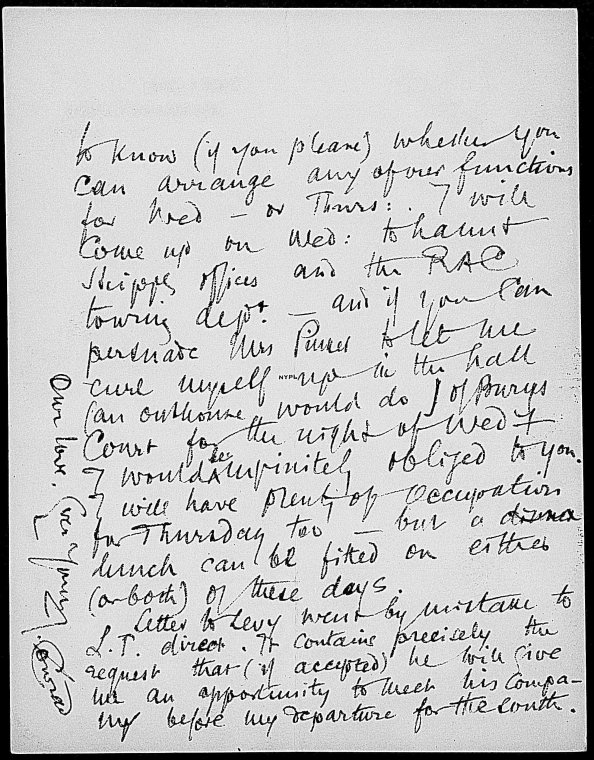 to know (if you please) whether you
can arrange any of our functions
for Wed — or Thurs: . I will
come up on Wed: to haunt
shippg offices and the RAC
touring dept. — and if you can
persuade Mrs Pinker to let me
curl myself up in the hall
NYPL
(an outhouse would do) of Burys
Court for the night of Wed:
I would be infinitely obliged to you.
I will have plenty of occupation
for Thursday too — but a dinner
lunch can be fitted on either
(or both) of these days.
Letter to Levy went by mistake to
L.T. direct. It contains precisely the
request that (if accepted) he will give
me an opportunity to meet his compa-
ny before my departure for the South.
Our love. Ever Yours J. Conrad